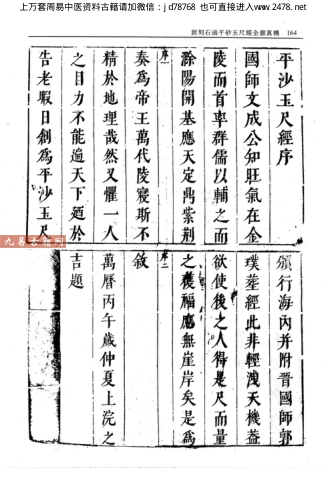 上万套周易中医资料古籍请加微信：jd78768 也可直接进入www.2478.net
新刻石函平砂玉尺經全書真機 164
平沙玉尺經序
國師文成公知旺氣在金
陵而首率群儒以輔之而
滁陽開基應天定鼎紫荆
奏為帝王萬代陵寢斯不
精於地理哉然又懼一人
之目力不能遍天下廼於
告老暇日創為平沙玉尺
序一
頒行海内并附晉國師郭
璞葬經此非輕洩天機蓋
欲使後之人得是尺而量
之獲福應無崖岸矣是為
敘
萬曆丙午歲仲夏上浣之
吉題
序二
九易古術网